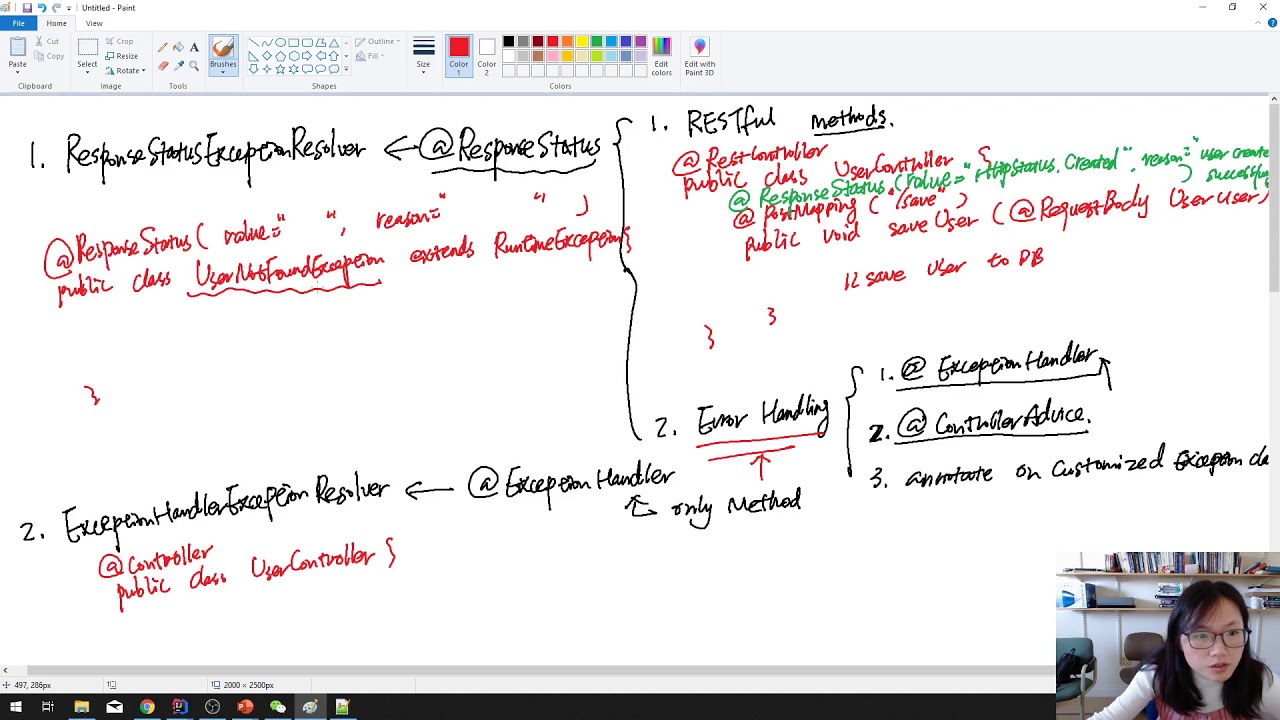 Untitled - Paint
File Home View
Paste
Cut
Copy
Clipboard
Select
Crop
Resize
Rotate
Image
Tools
Brushes
Shapes
Outline
Fill
Size
Color 1
Color 2
Edit colors
Colors
Edit with Paint 3D
1. ResponseStatusExceptionResolver ← @ResponseStatus
@ResponseStatus( value=" ", reason=" " )
public class UserNotFoundException extends RuntimeException{
}
1. RESTful methods.
@RestController
public class UserController {
@ResponseStatus(value="HttpStatus.Created", reason="user create successfully
)
@PostMapping ("/save")
public void saveUser (@RequestBody User user)
// save user to DB
}
}
2. Error Handling
1. @ExceptionHandler
2. @ControllerAdvice.
3. annotate on customized Exception cla
2. ExceptionHandlerExceptionResolver ← @ExceptionHandler
only Method
@Controller
public class UserController {
497, 286px
2000 × 2500px